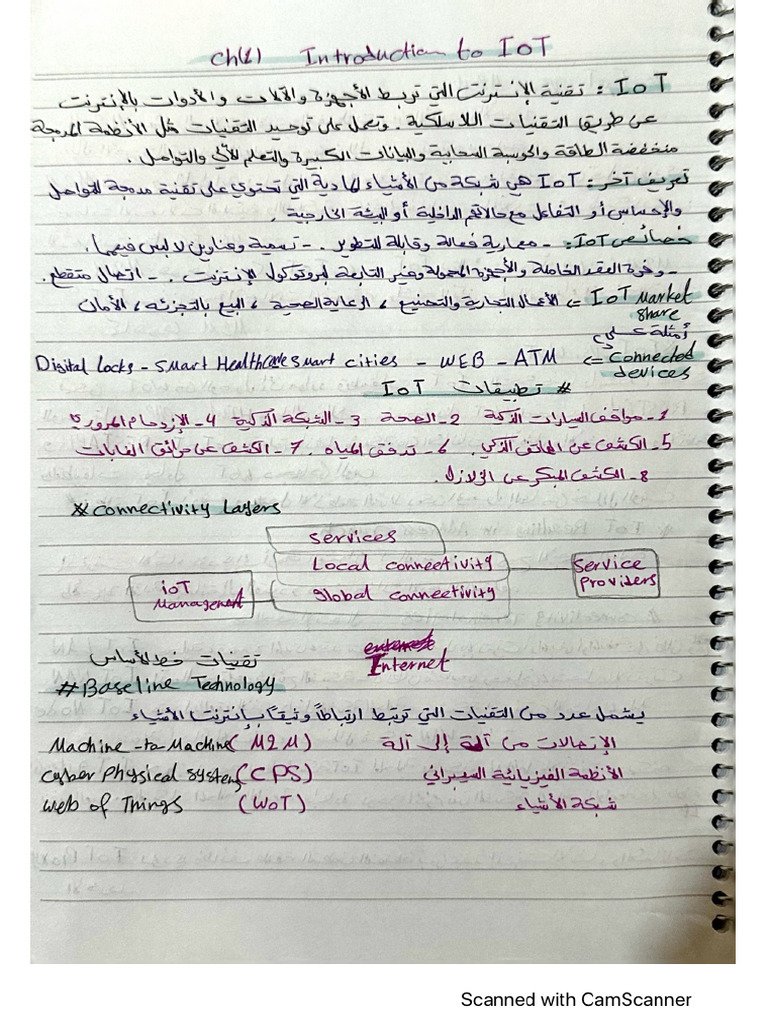 ch(1) Introduction to IoT
IoT : تقنية الإنترنت التي تربط الأجهزة والآلات والأدوات بالإنترنت
عن طريق التقنيات اللاسلكية . وتعمل على توحيد التقنيات مثل الأنظمة المدمجة
منخفضة الطاقة والحوسبة السحابية والبيانات الكبيرة والتعلم الآلي والتواصل .
تعريف آخر : IoT هي شبكة من الأشياء المادية التي تحتوي على تقنية مدمجة للتواصل
والإحساس أو التفاعل مع حالاتهم الداخلية أو البيئة الخارجية .
خصائص IoT : - معمارية فعالة وقابلة للتطوير . - تسمية وعناوين لا لبس فيهما .
- وفرة العقد الخاملة والأجهزة المحمولة وغير التابعة لبروتوكول الإنترنت . - اتصال متقطع .
IoT Market share <= الأعمال التجارية والتصنيع ، الرعاية الصحية ، البيع بالتجزئه ، الأمان
أمثلة على
Connected devices <= Digital Locks - Smart Healthcare smart cities - WEB - ATM
# تطبيقات IoT
1- مواقف السيارات الذكية 2- الصحة 3- الشبكة الذكية 4- الإزدحام المروري
5- الكشف عن الهاتف الذكي . 6- تدفق المياه . 7- الكشف عن حرائق الغابات
8- الكشف المبكر عن الزلازل .
# Connectivity Layers
Services
Local connectivity
Service providers
global connectivity
ioT Management
Internet
تقنيات خط الأساس
# Baseline Technology
يشمل عدد من التقنيات التي ترتبط ارتباطاً وثيقاً بإنترنت الأشياء
Machine-to-Machine (M2M) الإتصالات من آلة إلى آلة
Cyber Physical system (CPS) الأنظمة الفيزيائية السيبراني
Web of Things (WoT) شبكة الأشياء
Scanned with CamScanner